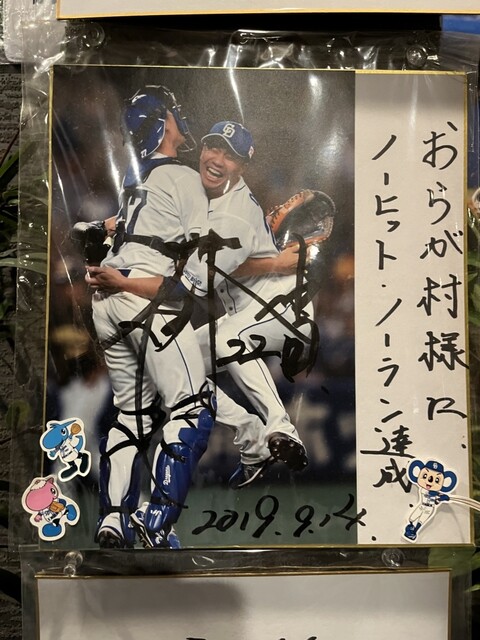 おらが村様に
ノーヒット・ノーラン達成
22
2019.9.14.
CD
7